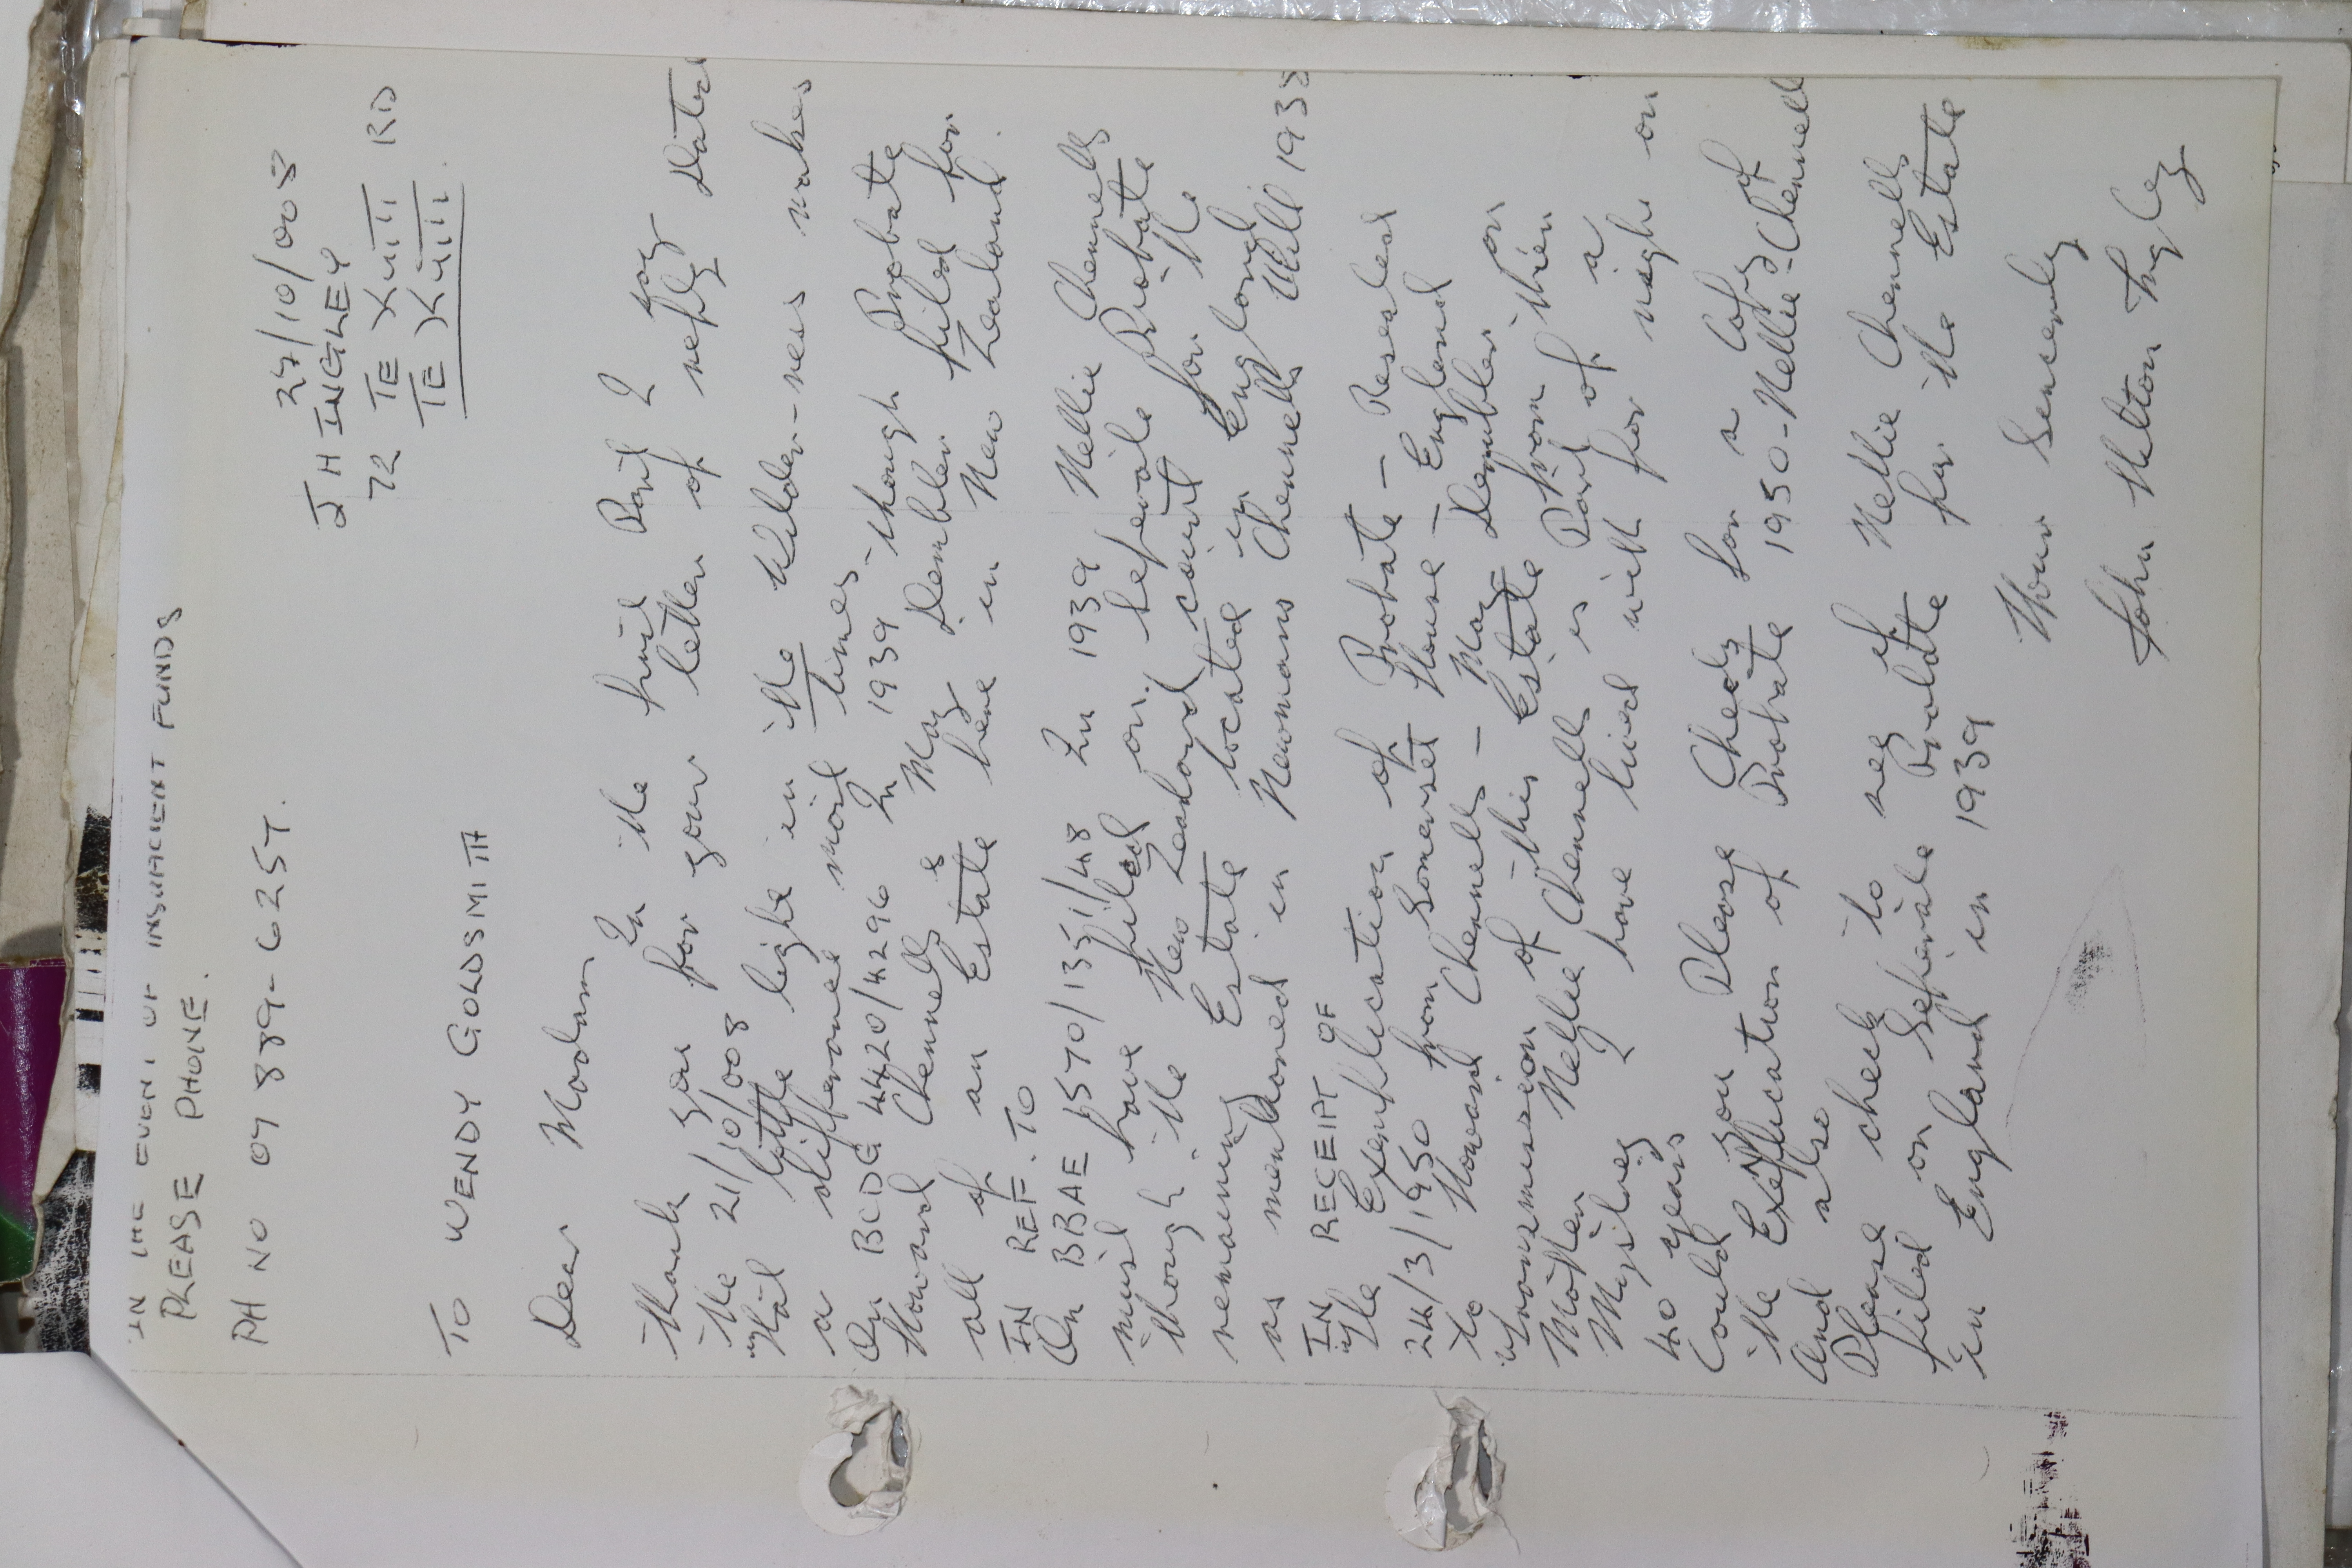 IN THE EVENT OF INSUFFICIENT FUNDS
PLEASE PHONE.
PH NO 07 889-6257.
27/10/008
J H INGLEY
72 TE
RD
TO WENDY GOLDSMITH
Dear Madam
In the first Part I say
thank you for your letter of reply Dated
the 21/10/008
what little light in the Wilder-ness makes
a differance most times
On BCDG 4420/4296 In 1939 though Probate
Howard Chennells May Dembler filed for
all of an Estate here in New Zealand.
IN REF. TO
On BBAE 1570/1351/48 In 1939 Nellie Chennells
must have filed on. seperate Probate
though the New Zealand court for the
remaining Estate located in England
as mentioned in Newmans Chennells Will 193
IN RECEIPT OF
the Exemplication of Probate – Resealed
24/3/1950 from Somerset House – England
to Howard Chennells – May Dembler on
transmission of this Estate from then
Mother Nellie Chennells is Part of a
Mystiey I have lived with for nigh on
40 years
Could you Please Check for a Copy of
the Exeplication of Probate 1950 - Nellie - Chennell
And also
Please check to say if Nellie Chennells
filed on Seperate Probate for the Estate
in England in 1939
Your Sencerely
John Ingley